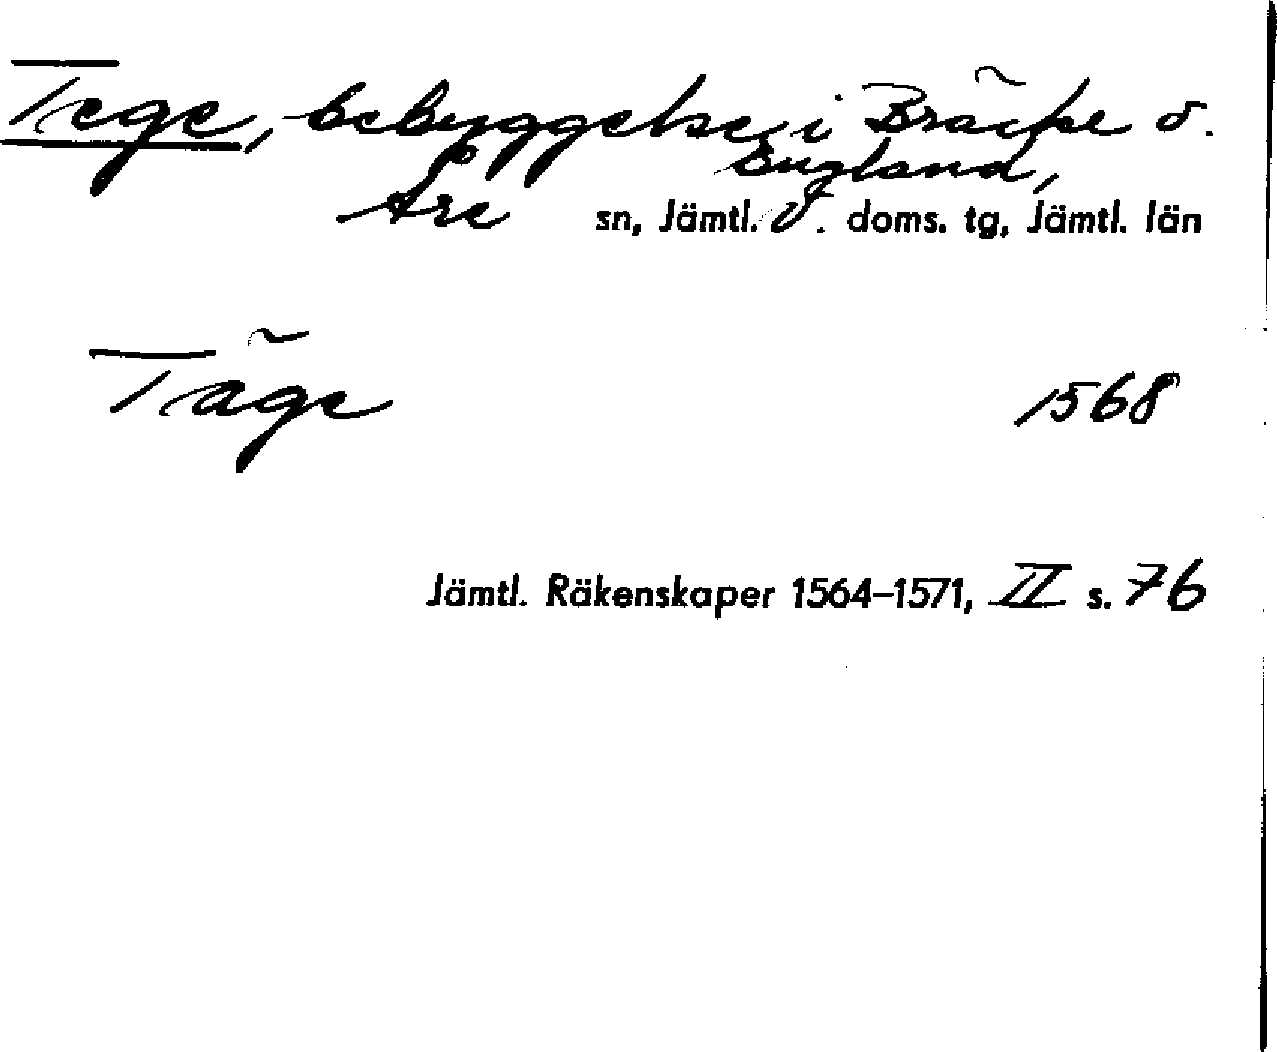 Tege, bebyggelse i Bräcke o.
England,
Åre sn, Jämtl. V. doms. tg, Jämtl. län
Täge 1568
Jämtl. Räkenskaper 1564–1571, II s. 76